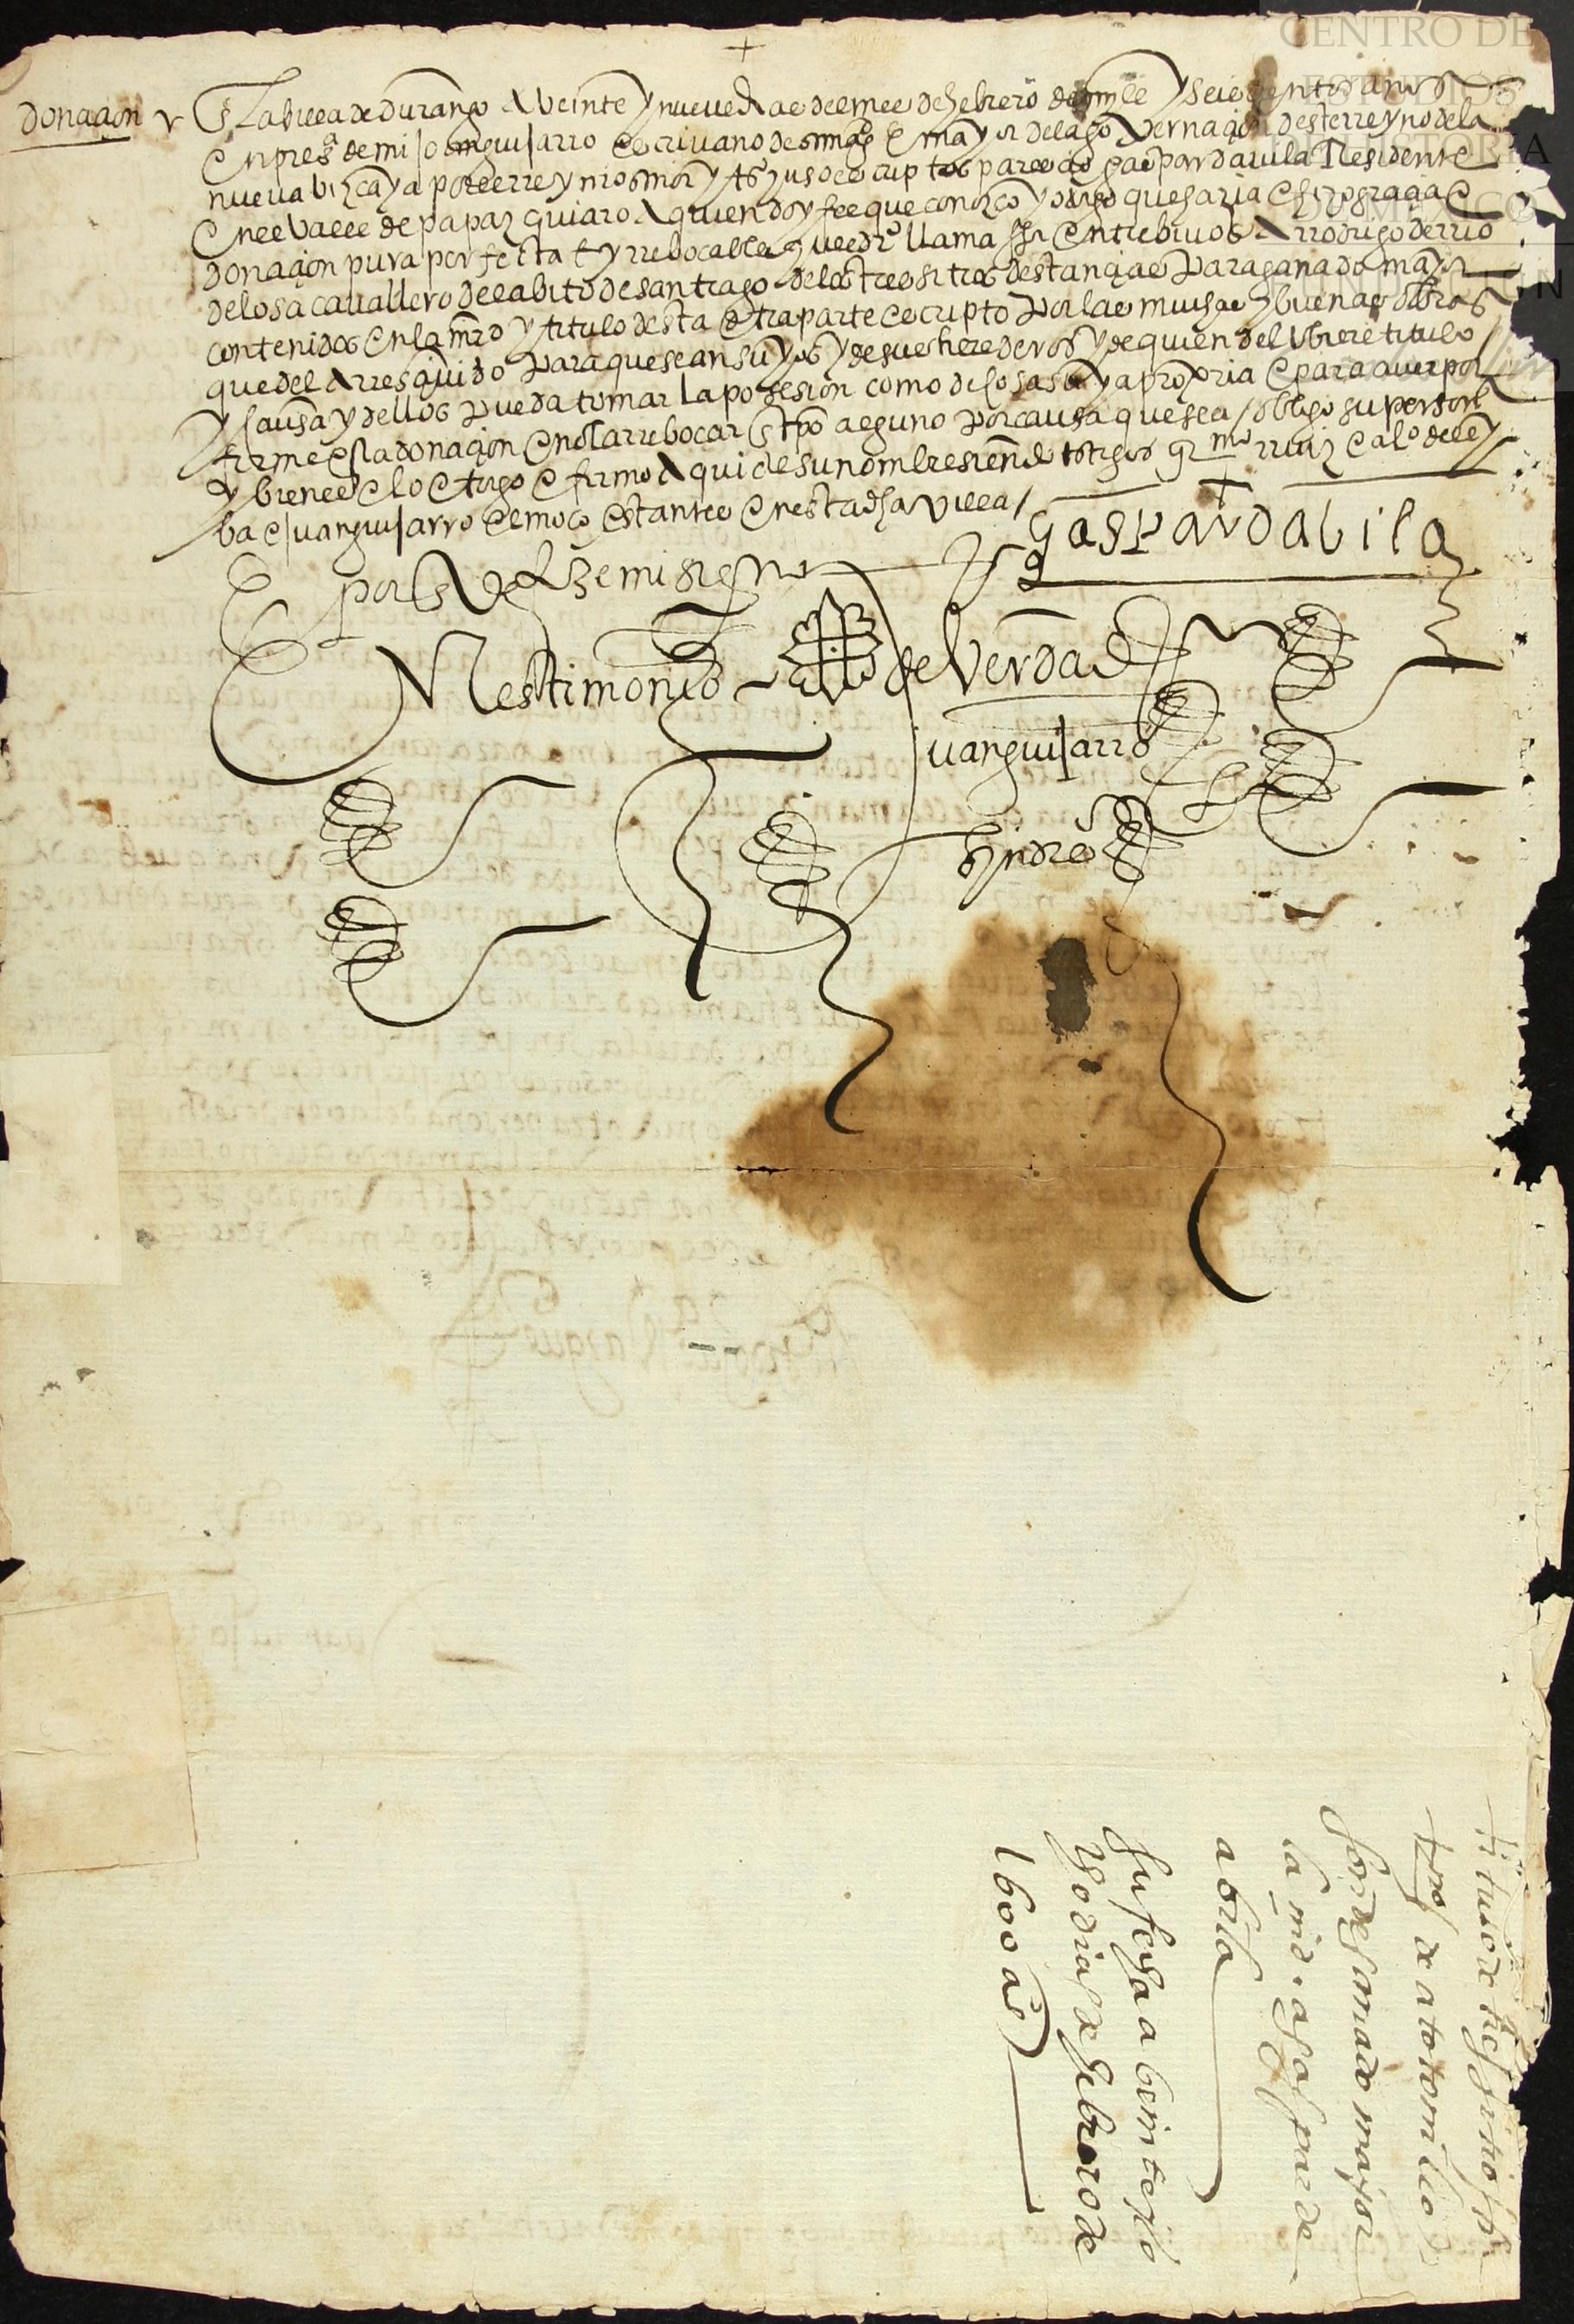 CENTRO DE
ESTUDIOS
DE HISTORIA
DE MEXICO
FUNDACIÓN
+
donaçion v En la billa de durango a veinte y nueve dias del mes de hebrero de mill y seiscientos años
en pres.ª de mi joan guijarro escrivano de su mag. e mayor de la governaçion deste rreyno de la
nueva bizcaya por el rrey nro señor y tos yuso escriptos parecio gaspar davila Residente
en el valle de papazquiaro a quien doy fee que conozco y dixo que haria e hizo graçia e
donaçion pura perfecta e yrrebocable que el dr.º llama fha entre bivos a rrodrigo de rrio
de losa cavallero del abito de santiago de los tres sitios destançias para ganado mayor
contenidos en la mrd y titulo desta otra parte escripto por las muchas y buenas obras
que del a rresçivido para que sean suyos y de sus herederos y de quien del ubiere titulo
y causa y dellos pueda tomar la posesion como de cosa suya propria e para aver por
firme esta donaçion e no la rrebocar en tpo alguno por causa que sea / obligo su persona
y bienes e lo otorgo e firmo aqui de su nombre siendo testigos grmo rruiz e al.º de
ba e juan guijarro el moço estantes en esta dha villa /
gaspar davila
E por ende fize mi signo
En testimonio de verdad
juan guijarro
s in dros
titulo de tres sitios
de atotonilco
son de ganado maior
la md. a gaspar de
abila
su fecha a beinte y lo
yo dias de hebrero de
1600 as